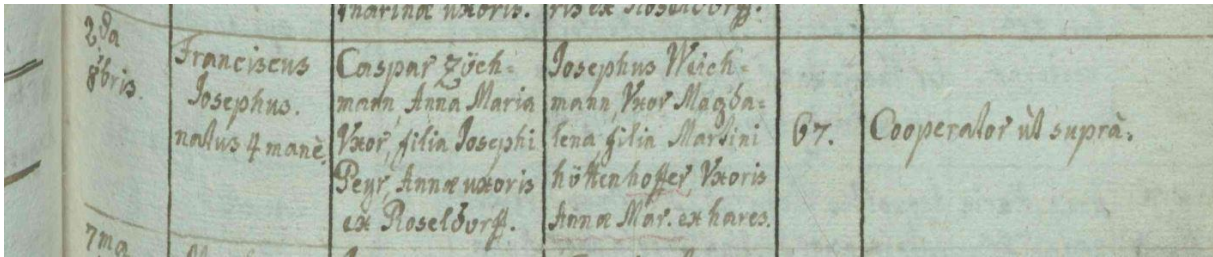 marinæ uxoris. ris ex Roseldorff.
2da 8bris.
Franciscus
Josephus.
natus 4 manè.
Caspar Zÿch=
mann, Anna Maria
Uxor, filia Josephi
Peyr, Annæ uxoris
ex Roseldorff.
Josephus Weich=
mann, Uxor Magda=
lena, filia Martini
höttenhoffer, Uxoris
Annæ Mar. ex hares.
67.
Cooperator ùt suprà.
7ma